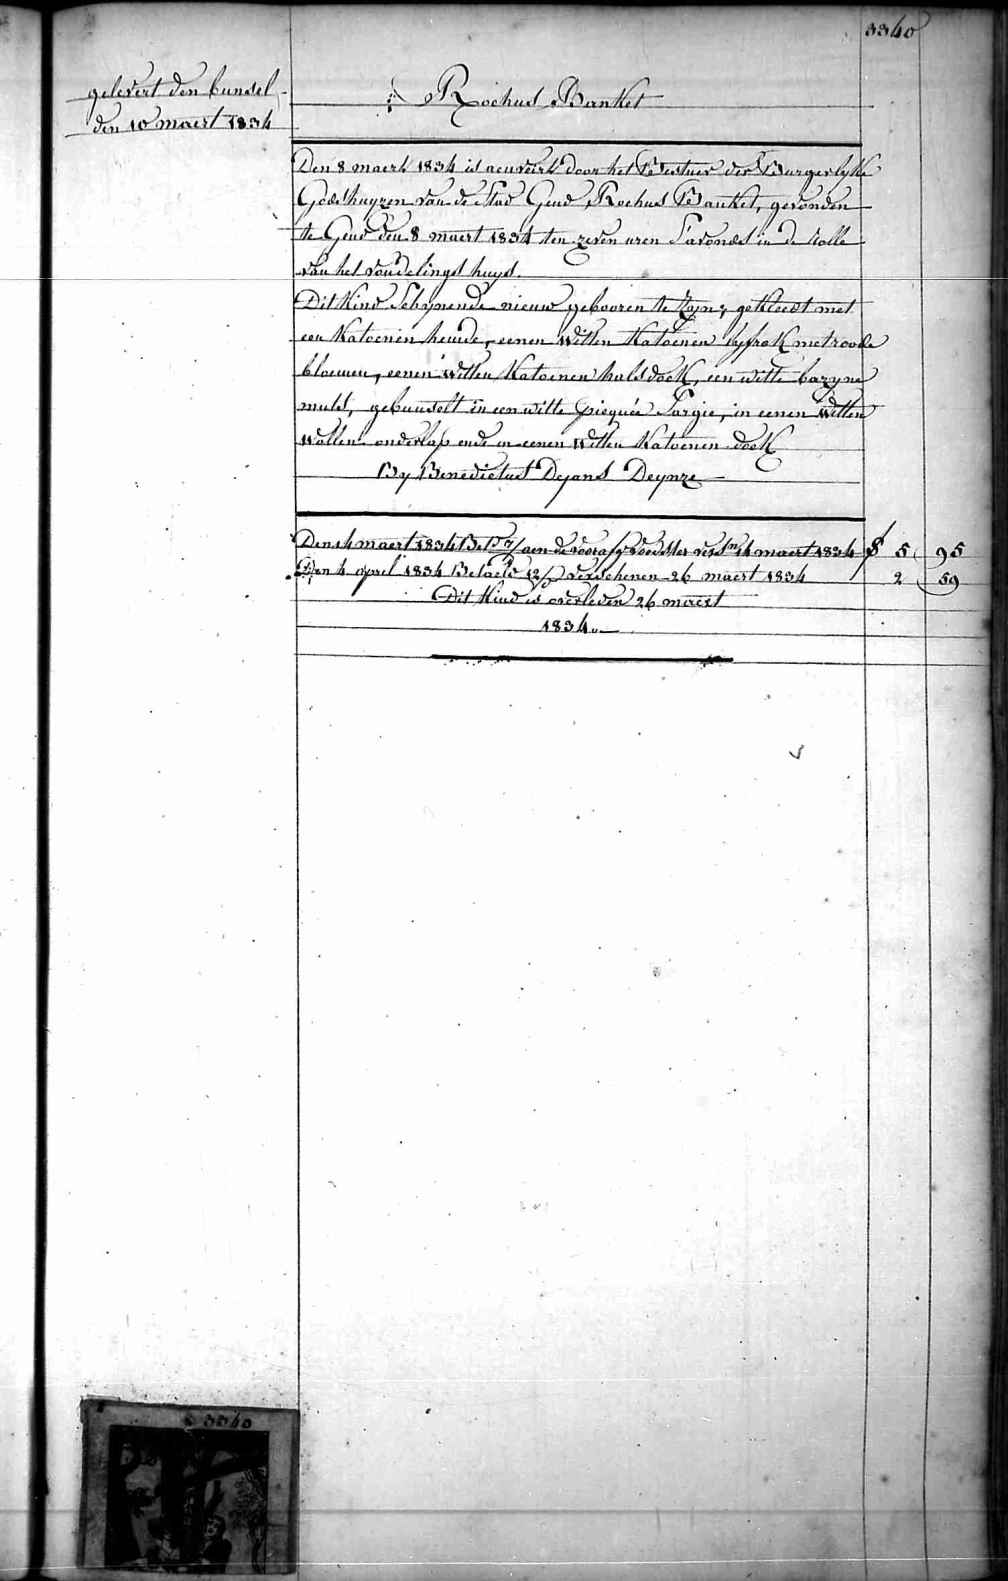 3340
gelevert den bunsel
den 10 maert 1834
Rochus Banket
Den 8 maert 1834 is aenveirt door het Bestuer der Burgerlyke
Godshuyzen van de Stad Gend, Rochus Banket, gevonden
te Gend den 8 maert 1834 ten zeven uren s'avonds in de rolle
van het vondelings huys.
Dit Kind Schynende nieuw gebooren te zyn; gekleedt met
een Katoenen hemde, eenen witten Katoenen lyfrok met roode
bloemen, eenen witten Katoenen halsdoek, een witte bazyne
muts, gebunselt in een witte piequée Sargie, in eenen witten
wollen onderlap ende in eenen witten Katoenen doek
By Benedictus Dejans Deynze
Den 14 maert 1834 Bet. aen de voedster 14 maert 1834 5 95
Den 4 april 1834 Betaeld 12/ verschenen 26 maert 1834 2 59
Dit Kind is overleden 26 maert
1834.
3340